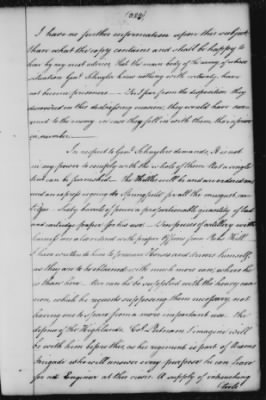 I have no further information upon this subject
than what the copy contains and shall be happy to
hear by my next advices that the main body of the army, of whose
situation Genl. Schuyler knew nothing with certainty, have
not become prisoners — But from the disposition they
discovered in this distressing manner, they would have
to the enemy in case they fell in with them, tho' inferior
in number.
In respect to Genl. Schuyler's demands, it is not
in my power to comply with the whole of them. Not a single
tent can be furnished — the Kettles will be and are ordered on
and an express is going to Springfield for all the musquet
. Sixty barrels of powder a proportionable quantity of lead
and cartridge paper for his use. Ten pieces of artillery with
harness are also ordered with proper Officers from Peeks Kill
I have written to him to procure Horses and drivers himself,
as they are to be obtained with much more ease where he
is than here — Nor can he be supplied with the heavy cannon,
which he requests supposing them necessary, not
having one to spare from a more important use the
defence of the Highlands. Col. Putnam I imagine will
be with him before this, as his regiment is part of Nixons
brigade who will answer every purpose he can have
for an Engineer at this crisis. A supply of intrenching
tools